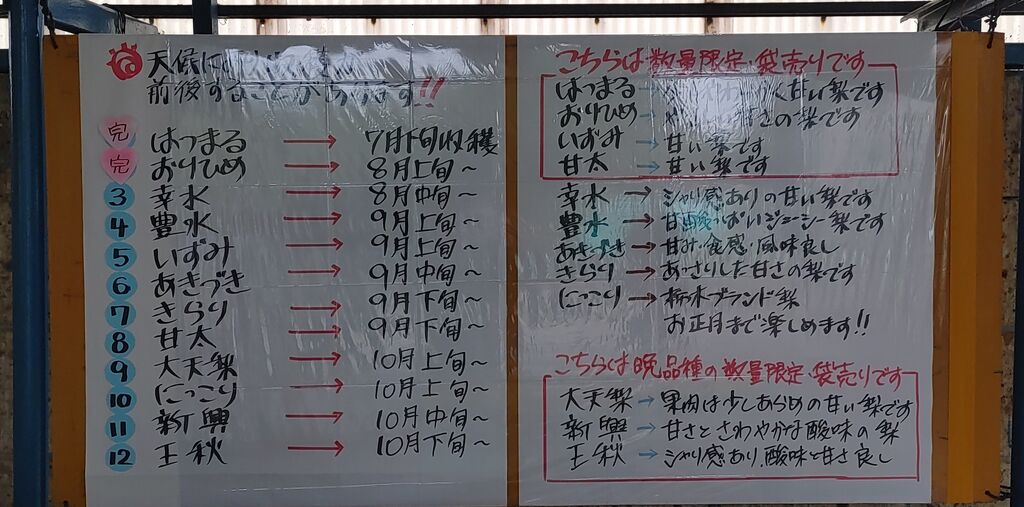 天候に
前後することがあります!!
完 はつまる → 7月下旬収穫
完 おりひめ → 8月上旬~
3 幸水 → 8月中旬~
4 豊水 → 9月上旬~
5 いずみ → 9月上旬~
6 あきづき → 9月中旬~
7 きらり → 9月下旬~
8 甘太 → 9月下旬~
9 大天梨 → 10月上旬~
10 にっこり → 10月上旬~
11 新興 → 10月中旬~
12 王秋 → 10月下旬~
こちらは数量限定・袋売りです
はつまる → 甘い梨です
おりひめ → 甘さの梨です
いずみ → 甘い梨です
甘太 → 甘い梨です
幸水 → シャリ感ありの甘い梨です
豊水 → 甘酸っぱいジューシー梨です
あきづき → 甘み・食感・風味良し
きらり → あっさりした甘さの梨です
にっこり → 栃木ブランド梨
お正月まで楽しめます!!
こちらは晩品種の数量限定・袋売りです
大天梨 → 果肉は少しあらめの甘い梨です
新興 → 甘さとさわやかな酸味の梨
王秋 → シャリ感あり、酸味と甘さ良し